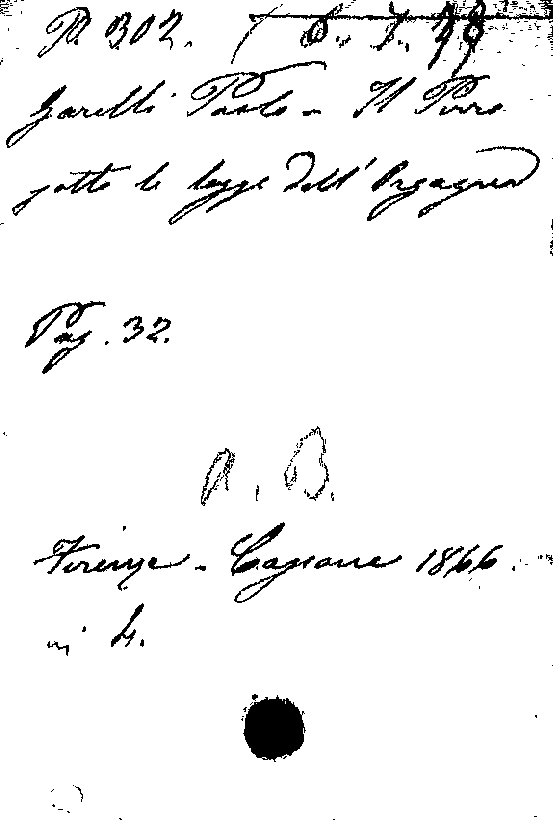 P. 302. (
Garelli Paolo - Il Pirro
sotto le logge dell'Orgagna
Pag. 32.
A. B.
Firenze - Cassone 1866.
in 4.